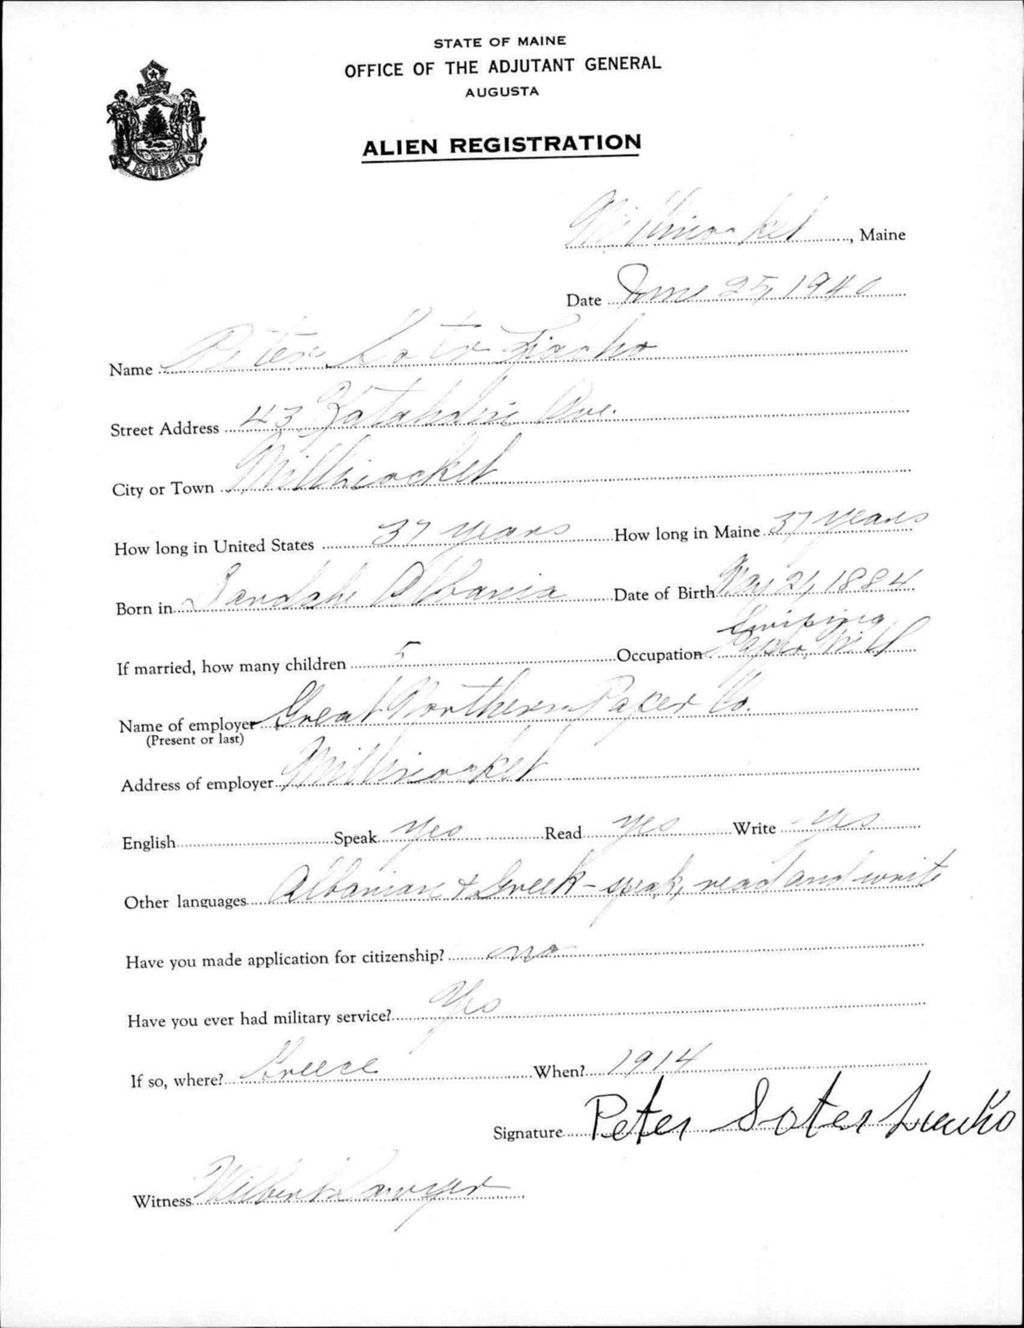 STATE OF MAINE
OFFICE OF THE ADJUTANT GENERAL
AUGUSTA
MAINE
ALIEN REGISTRATION
Millinocket, Maine
Date June 25, 1940
Name Peter Soter
Street Address 43 Katahdin Ave.
City or Town Millinocket
How long in United States 37 years How long in Maine 37 years
Born in Albania Date of Birth May 21, 1884
If married, how many children 5 Occupation Paper Mill
Name of employer Great Northern Paper Co.
(Present or last)
Address of employer Millinocket
English Speak Yes Read Yes Write Yes
Other languages Albanian & Greek - speak, read and write
Have you made application for citizenship? no
Have you ever had military service? Yes
If so, where? Greece When? 1914
Signature Peter Soter
Witness Wilbert Sawyer